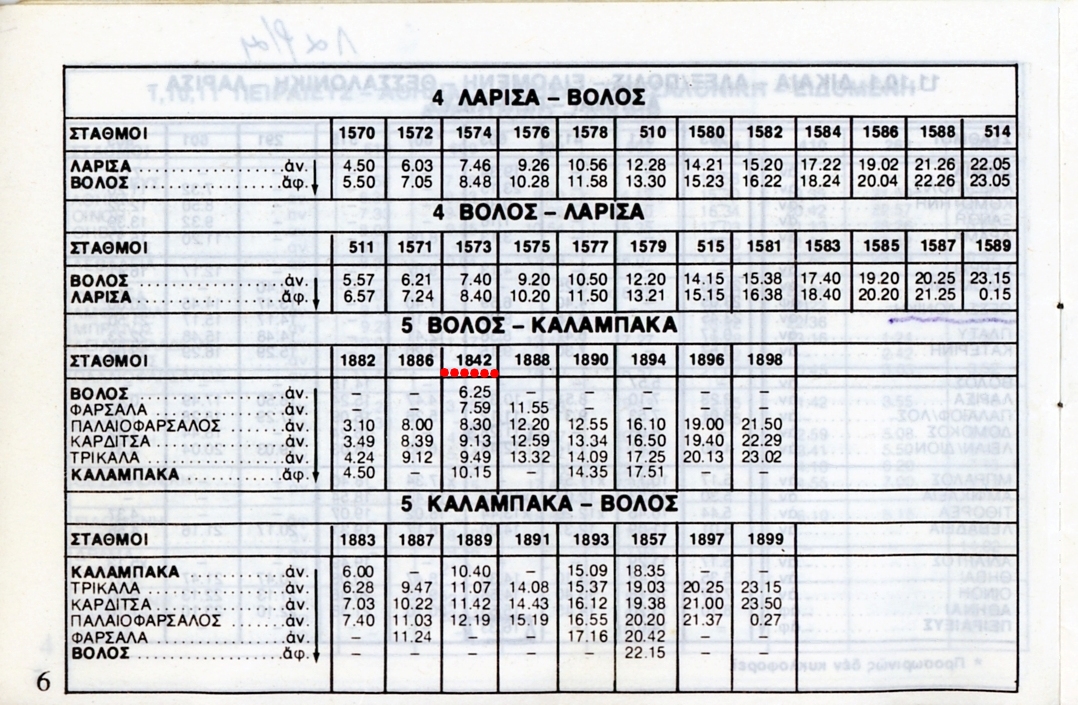 4 ΛΑΡΙΣΑ – ΒΟΛΟΣ
ΣΤΑΘΜΟΙ 1570 1572 1574 1576 1578 510 1580 1582 1584 1586 1588 514
ΛΑΡΙΣΑ ἀν. 4.50 6.03 7.46 9.26 10.56 12.28 14.21 15.20 17.22 19.02 21.26 22.05
ΒΟΛΟΣ ἄφ. 5.50 7.05 8.48 10.28 11.58 13.30 15.23 16.22 18.24 20.04 22.26 23.05
4 ΒΟΛΟΣ – ΛΑΡΙΣΑ
ΣΤΑΘΜΟΙ 511 1571 1573 1575 1577 1579 515 1581 1583 1585 1587 1589
ΒΟΛΟΣ ἀν. 5.57 6.21 7.40 9.20 10.50 12.20 14.15 15.38 17.40 19.20 20.25 23.15
ΛΑΡΙΣΑ ἄφ. 6.57 7.24 8.40 10.20 11.50 13.21 15.15 16.38 18.40 20.20 21.25 0.15
5 ΒΟΛΟΣ – ΚΑΛΑΜΠΑΚΑ
ΣΤΑΘΜΟΙ 1882 1886 1842 1888 1890 1894 1896 1898
ΒΟΛΟΣ ἀν. – – 6.25 – – – – –
ΦΑΡΣΑΛΑ ἀν. – – 7.59 11.55 – – – –
ΠΑΛΑΙΟΦΑΡΣΑΛΟΣ ἀν. 3.10 8.00 8.30 12.20 12.55 16.10 19.00 21.50
ΚΑΡΔΙΤΣΑ ἀν. 3.49 8.39 9.13 12.59 13.34 16.50 19.40 22.29
ΤΡΙΚΑΛΑ ἀν. 4.24 9.12 9.49 13.32 14.09 17.25 20.13 23.02
ΚΑΛΑΜΠΑΚΑ ἄφ. 4.50 – 10.15 – 14.35 17.51 – –
5 ΚΑΛΑΜΠΑΚΑ – ΒΟΛΟΣ
ΣΤΑΘΜΟΙ 1883 1887 1889 1891 1893 1857 1897 1899
ΚΑΛΑΜΠΑΚΑ ἀν. 6.00 – 10.40 – 15.09 18.35 – –
ΤΡΙΚΑΛΑ ἀν. 6.28 9.47 11.07 14.08 15.37 19.03 20.25 23.15
ΚΑΡΔΙΤΣΑ ἀν. 7.03 10.22 11.42 14.43 16.12 19.38 21.00 23.50
ΠΑΛΑΙΟΦΑΡΣΑΛΟΣ ἀν. 7.40 11.03 12.19 15.19 16.55 20.20 21.37 0.27
ΦΑΡΣΑΛΑ ἀν. – 11.24 – – 17.16 20.42 – –
ΒΟΛΟΣ ἄφ. – – – – – 22.15 – –
6